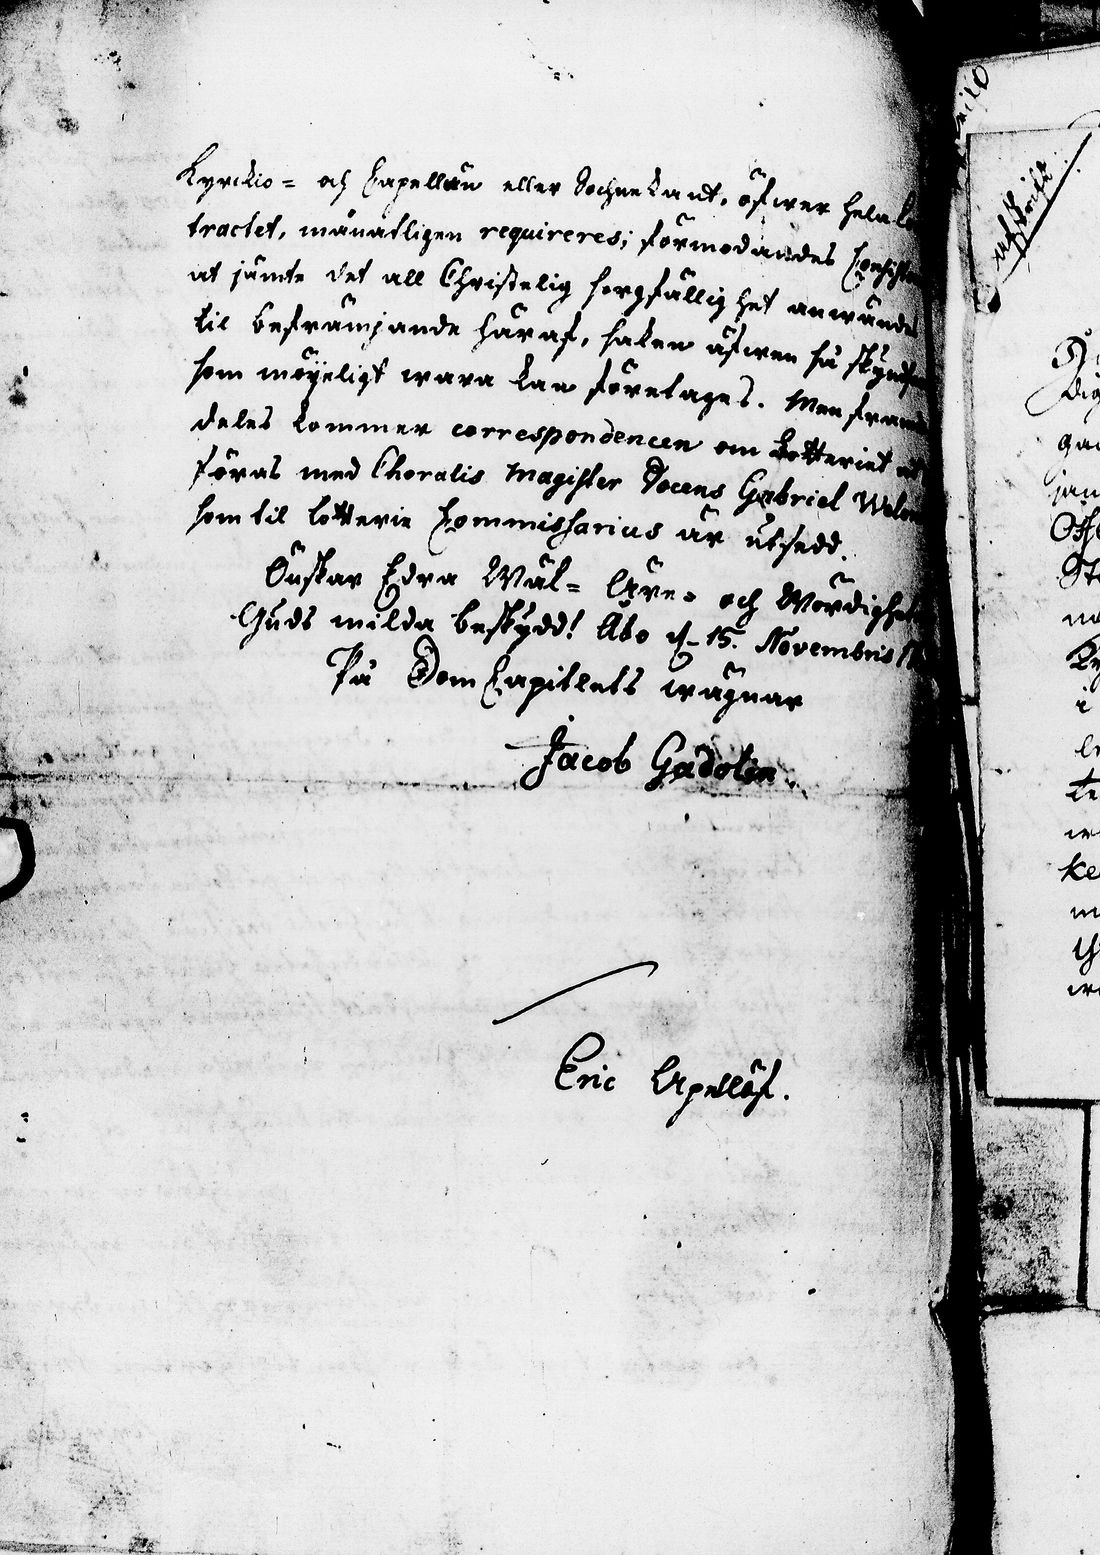 Kyrckio- och Capellan eller Sochnekant, öfwer hela Co
tractet, månatligen requireres; förmodandes Consisto
at jämte det all Christelig sorgfällighet anwändes
til befrämjande häraf, saken äfwen så skynds
som möyeligt wara kan företages. Men fram
deles kommer correspondencen om Lotteriet at
föras med Choralis Magister Docens Gabriel
som til Lotterie Commissarius är utsedd.
Önskar Edra Wäl- Äre- och Wördighet
Guds milda beskydd! Åbo d. 15. Novembris
På DomCapitlets wägnar
Jacob Gadolin.
Eric Apellöf.
afskrift
Dig
ga
jäm
Off
Ste
Ky
i
te
ke